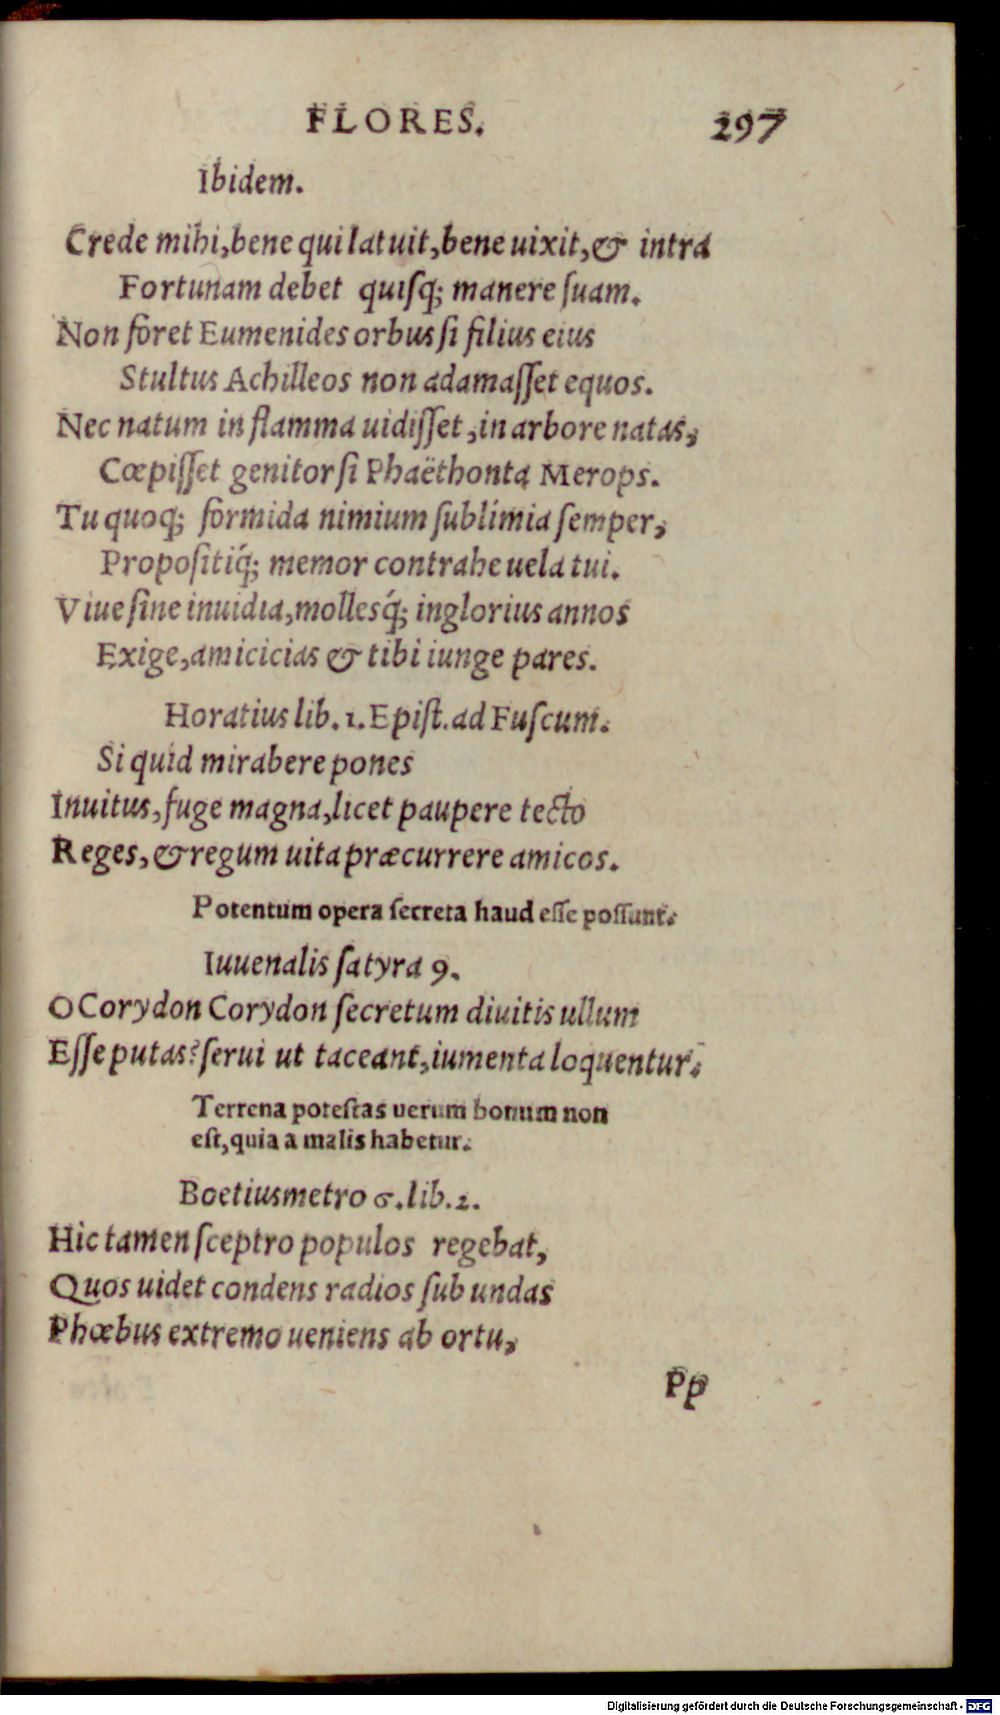 FLORES. 297
Ibidem.
Crede mihi, bene qui latuit, bene uixit, & intra
Fortunam debet quiſq; manere ſuam.
Non foret Eumenides orbus ſi filius eius
Stultus Achilleos non adamaſſet equos.
Nec natum in flamma uidiſſet, in arbore natas,
Cœpiſſet genitor ſi Phaëthonta Merops.
Tu quoq; formida nimium ſublimia ſemper,
Propoſitiq́; memor contrahe uela tui.
Viue ſine inuidia, mollesq́; inglorius annos
Exige, amicicias & tibi iunge pares.
Horatius lib. 1. Epiſt. ad Fuſcum.
Si quid mirabere pones
Inuitus, fuge magna, licet paupere tecto
Reges, & regum uita præcurrere amicos.
Potentum opera ſecreta haud eſſe poſſunt.
Iuuenalis ſatyra 9.
O Corydon Corydon ſecretum diuitis ullum
Eſſe putas? ſerui ut taceant, iumenta loquentur.
Terrena poteſtas uerum bonum non
eſt, quia a malis habetur.
Boetius metro 6. lib. 2.
Hic tamen ſceptro populos regebat,
Quos uidet condens radios ſub undas
Phœbus extremo ueniens ab ortu,
Pp
Digitalisierung gefördert durch die Deutsche Forschungsgemeinschaft - DFG